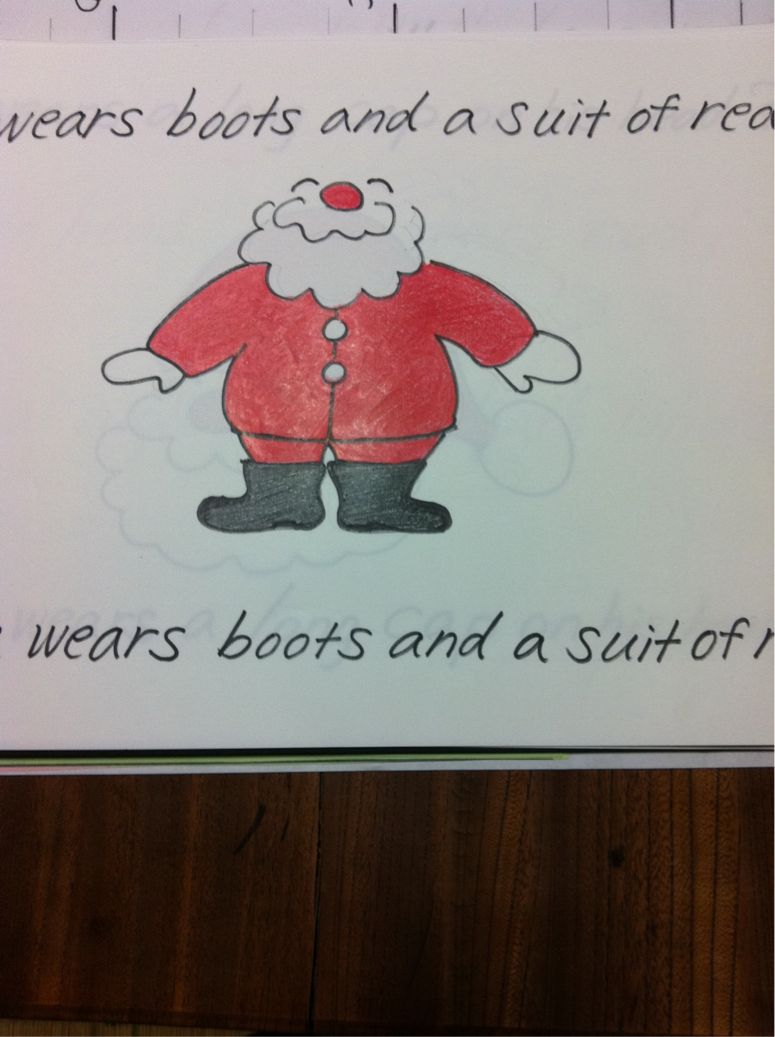 wears boots and a suit of red
wears boots and a suit of